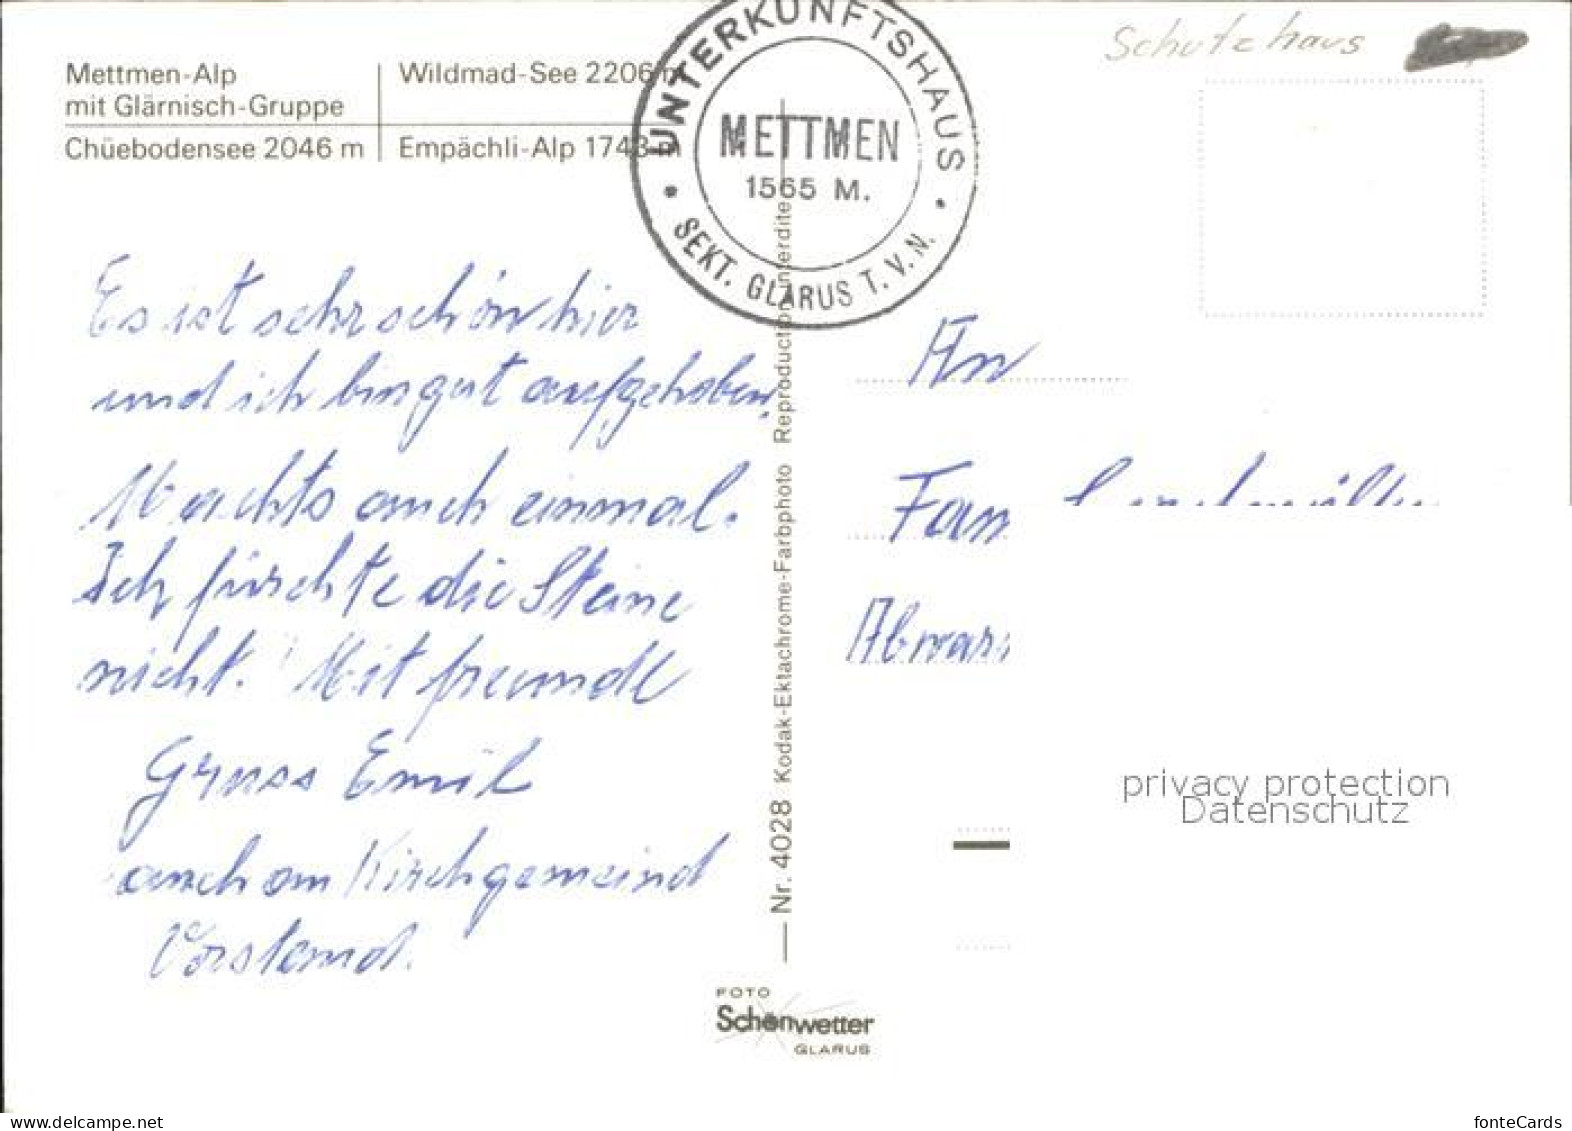 Schutzhaus
Mettmen-Alp
mit Glärnisch-Gruppe
Wildmad-See 2206 m
Chüebodensee 2046 m
Empächli-Alp 1743 m
UNTERKUNFTSHAUS
METTMEN
1565 M.
SEKT. GLARUS T.V.N.
Es ist sehr schön hier
und ich bin gut aufgehoben.
Machts auch einmal.
Ich fürchte die Steine
nicht. Mit freundl
Gruss Emil
auch an Kirchgemeind
Vorstand.
Nr. 4028 Kodak-Ektachrome-Farbphoto Reproduction interdite
An
Fam
privacy protection
Datenschutz
FOTO
Schönwetter
GLARUS
www.delcampe.net
fonteCards